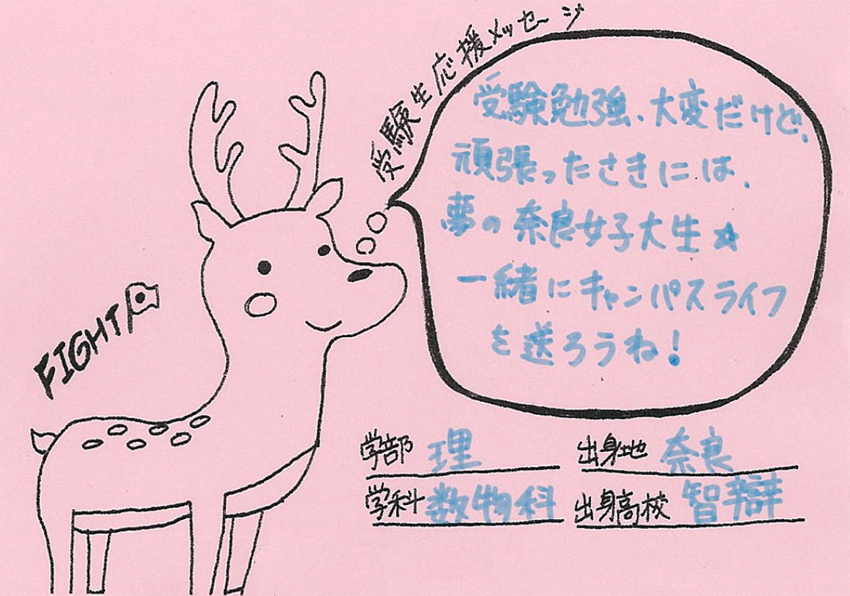 受験生応援メッセージ
受験勉強、大変だけど、
頑張ったさきには、
夢の奈良女子大生☆
一緒にキャンパスライフ
を送ろうね!
FIGHT
学部 理
出身地 奈良
学科 数物科
出身高校 智辯